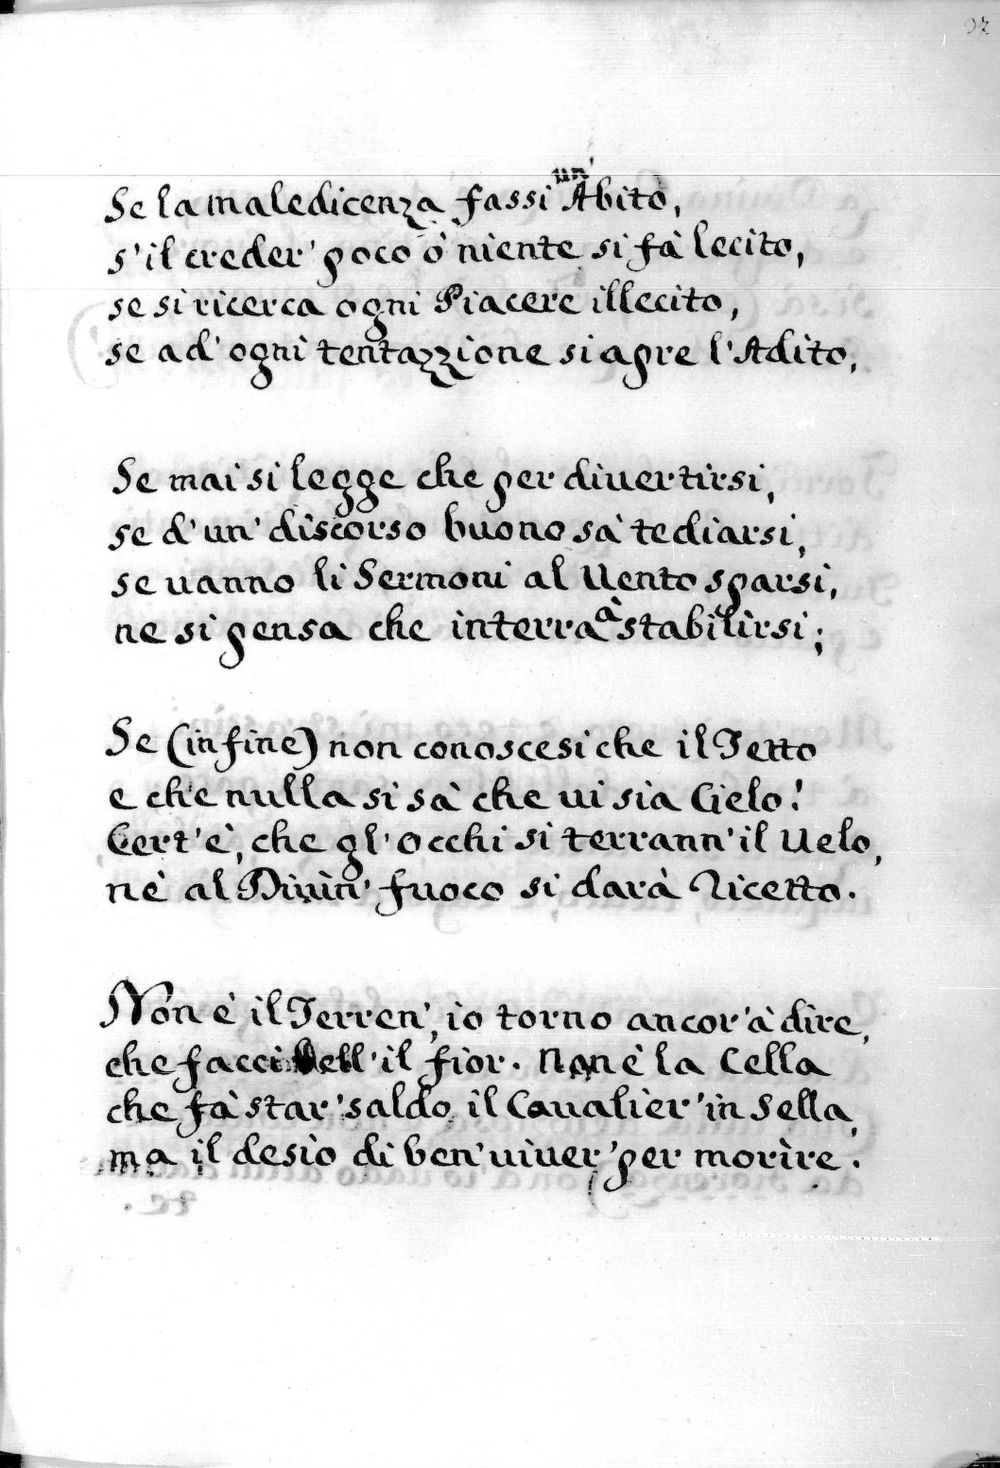 97
Se la maledicenza fassi un' Abito,
s'il creder' poco ò niente si fà lecito,
se si ricerca ogni Piacere illecito,
se ad' ogni tentazzione si apre l'Adito,
Se mai si legge che per diuertirsi,
se d'un' discorso buono sà tediarsi,
se uanno li Sermoni al Uento sparsi,
ne si pensa che interra à stabilirsi;
Se (in fine) non conoscesi che il Tetto
e che nulla si sà che ui sia Cielo!
Cert'è, che gl'Occhi si terrann'il Uelo,
nè al Diuin' fuoco si darà Ricetto.
Non è il Terren', io torno ancor'à dire,
che facci bell'il fior. Non è la Cella
che fà star'saldo il Caualier'in Sella,
ma il desìo di ben'uiuer'per morìre.